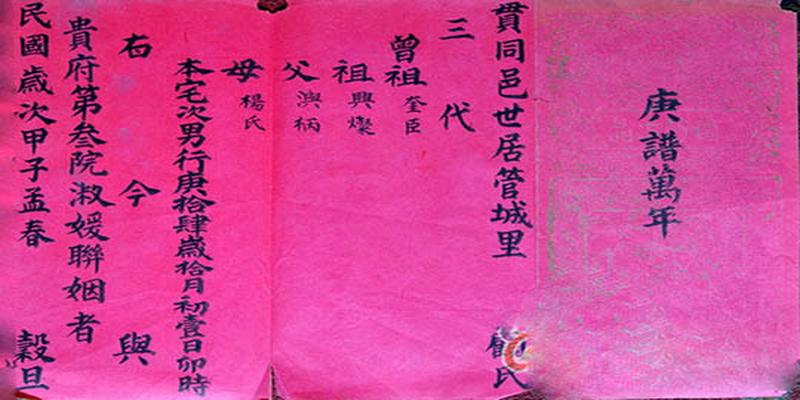 庚譜萬年
貫同邑世居管城里 氏
三代
曾祖 奎臣
祖 興燦
父 興柄
母 楊氏
本宅次男行庚拾肆歲拾月初壹日卯時
右今與
貴府第叁院淑媛聯姻者
民國歲次甲子孟春 穀旦